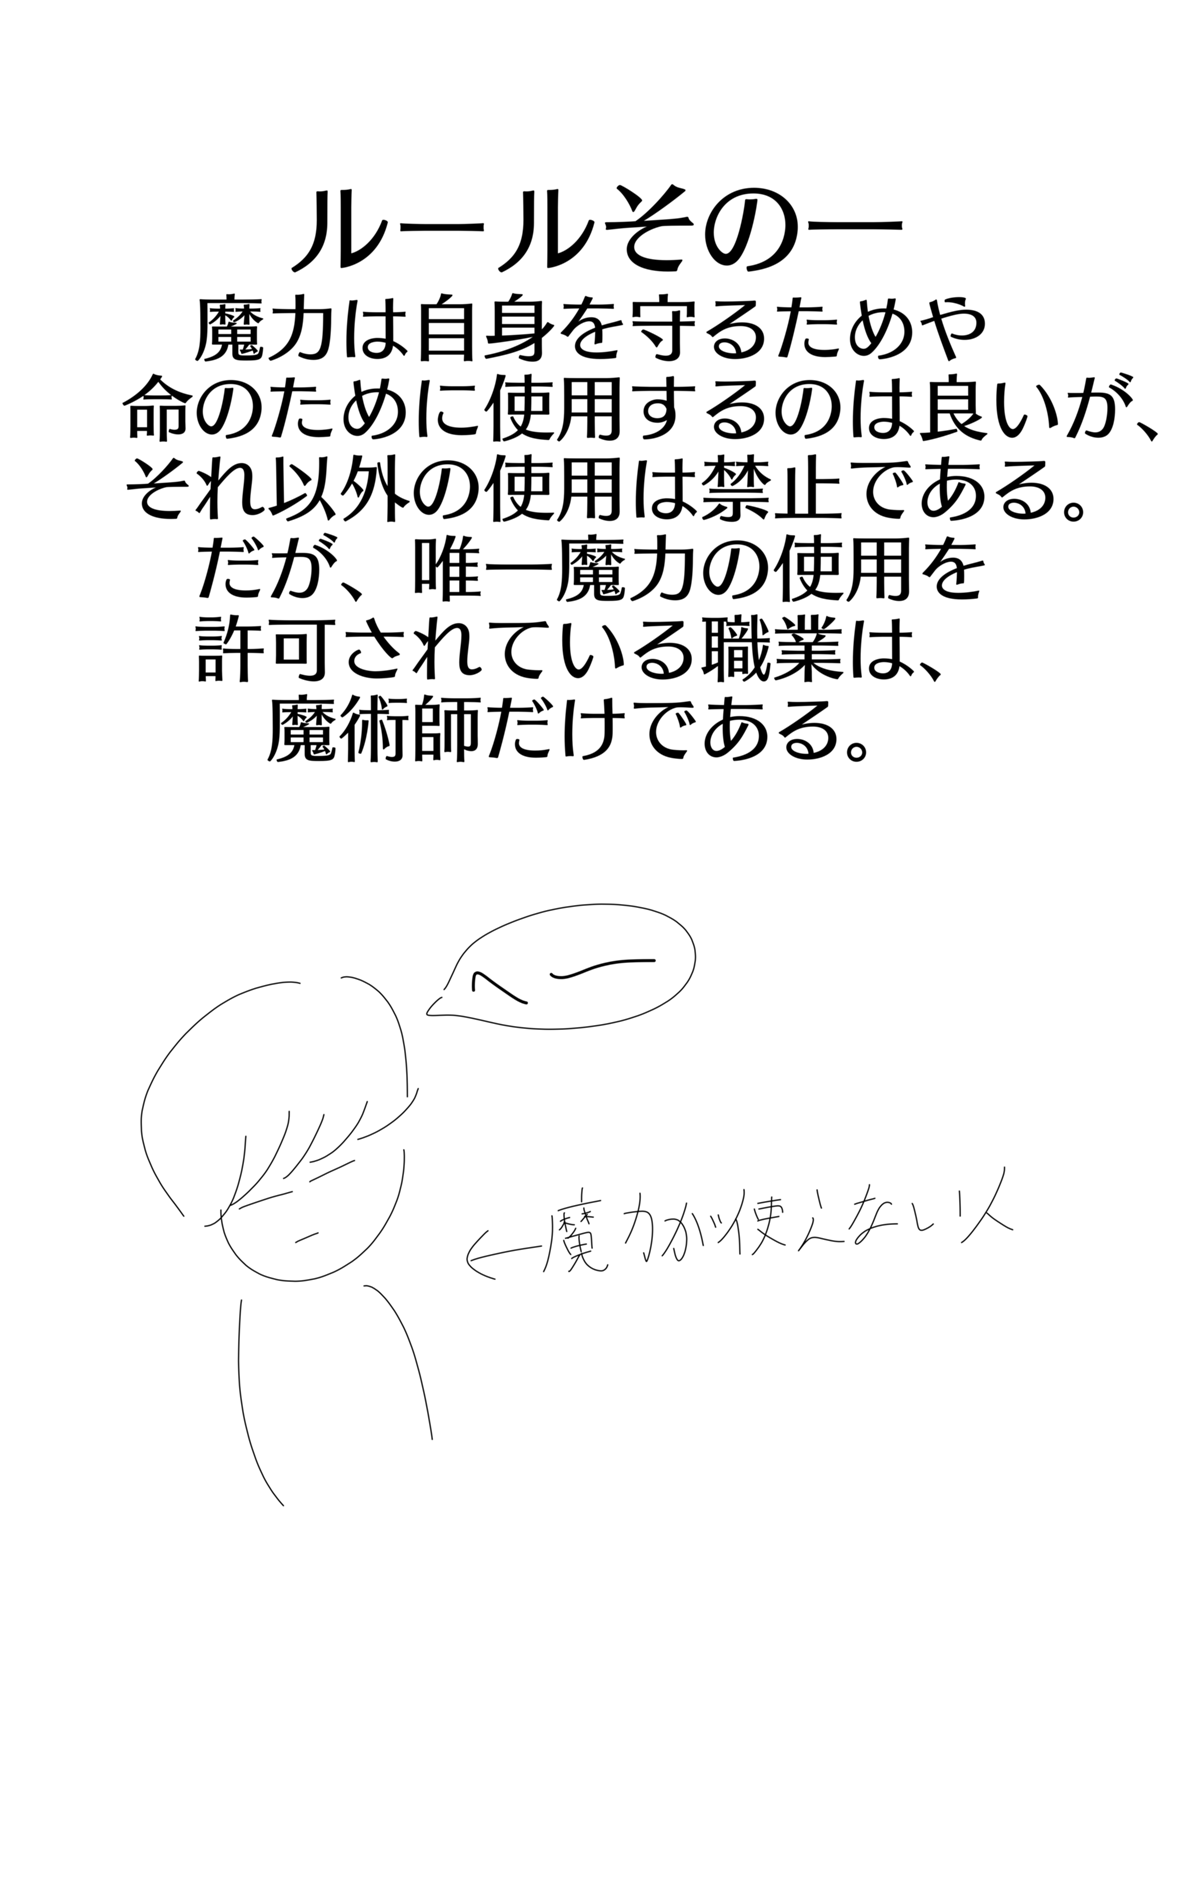 ルールその一
魔力は自身を守るためや
命のために使用するのは良いが、
それ以外の使用は禁止である。
だが、唯一魔力の使用を
許可されている職業は、
魔術師だけである。
へー
←魔力が使えない人